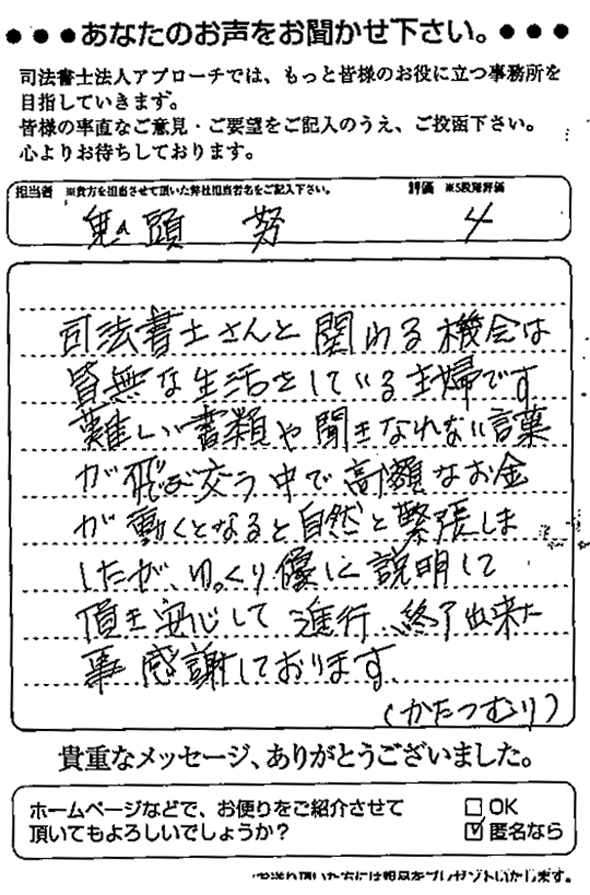 ●●●あなたのお声をお聞かせ下さい。●●●
司法書士法人アプローチでは、もっと皆様のお役に立つ事務所を
目指していきます。
皆様の率直なご意見・ご要望をご記入のうえ、ご投函下さい。
心よりお待ちしております。
担当者 ※貴方を担当させて頂いた弊社担当者名をご記入下さい。 評価 ※5段階評価
鬼頭 努 4
司法書士さんと関わる機会は
皆無な生活をしている主婦です
難しい書類や聞きなれない言葉
が飛び交う中で高額なお金
が動くとなると自然と緊張しま
したが、ゆっくり優しく説明して
頂き安心して進行、終了出来た
事感謝しております。
(かたつむり)
貴重なメッセージ、ありがとうございました。
ホームページなどで、お便りをご紹介させて □OK
頂いてもよろしいでしょうか? ☑匿名なら
お送り頂いた方には粗品をプレゼントいたします。